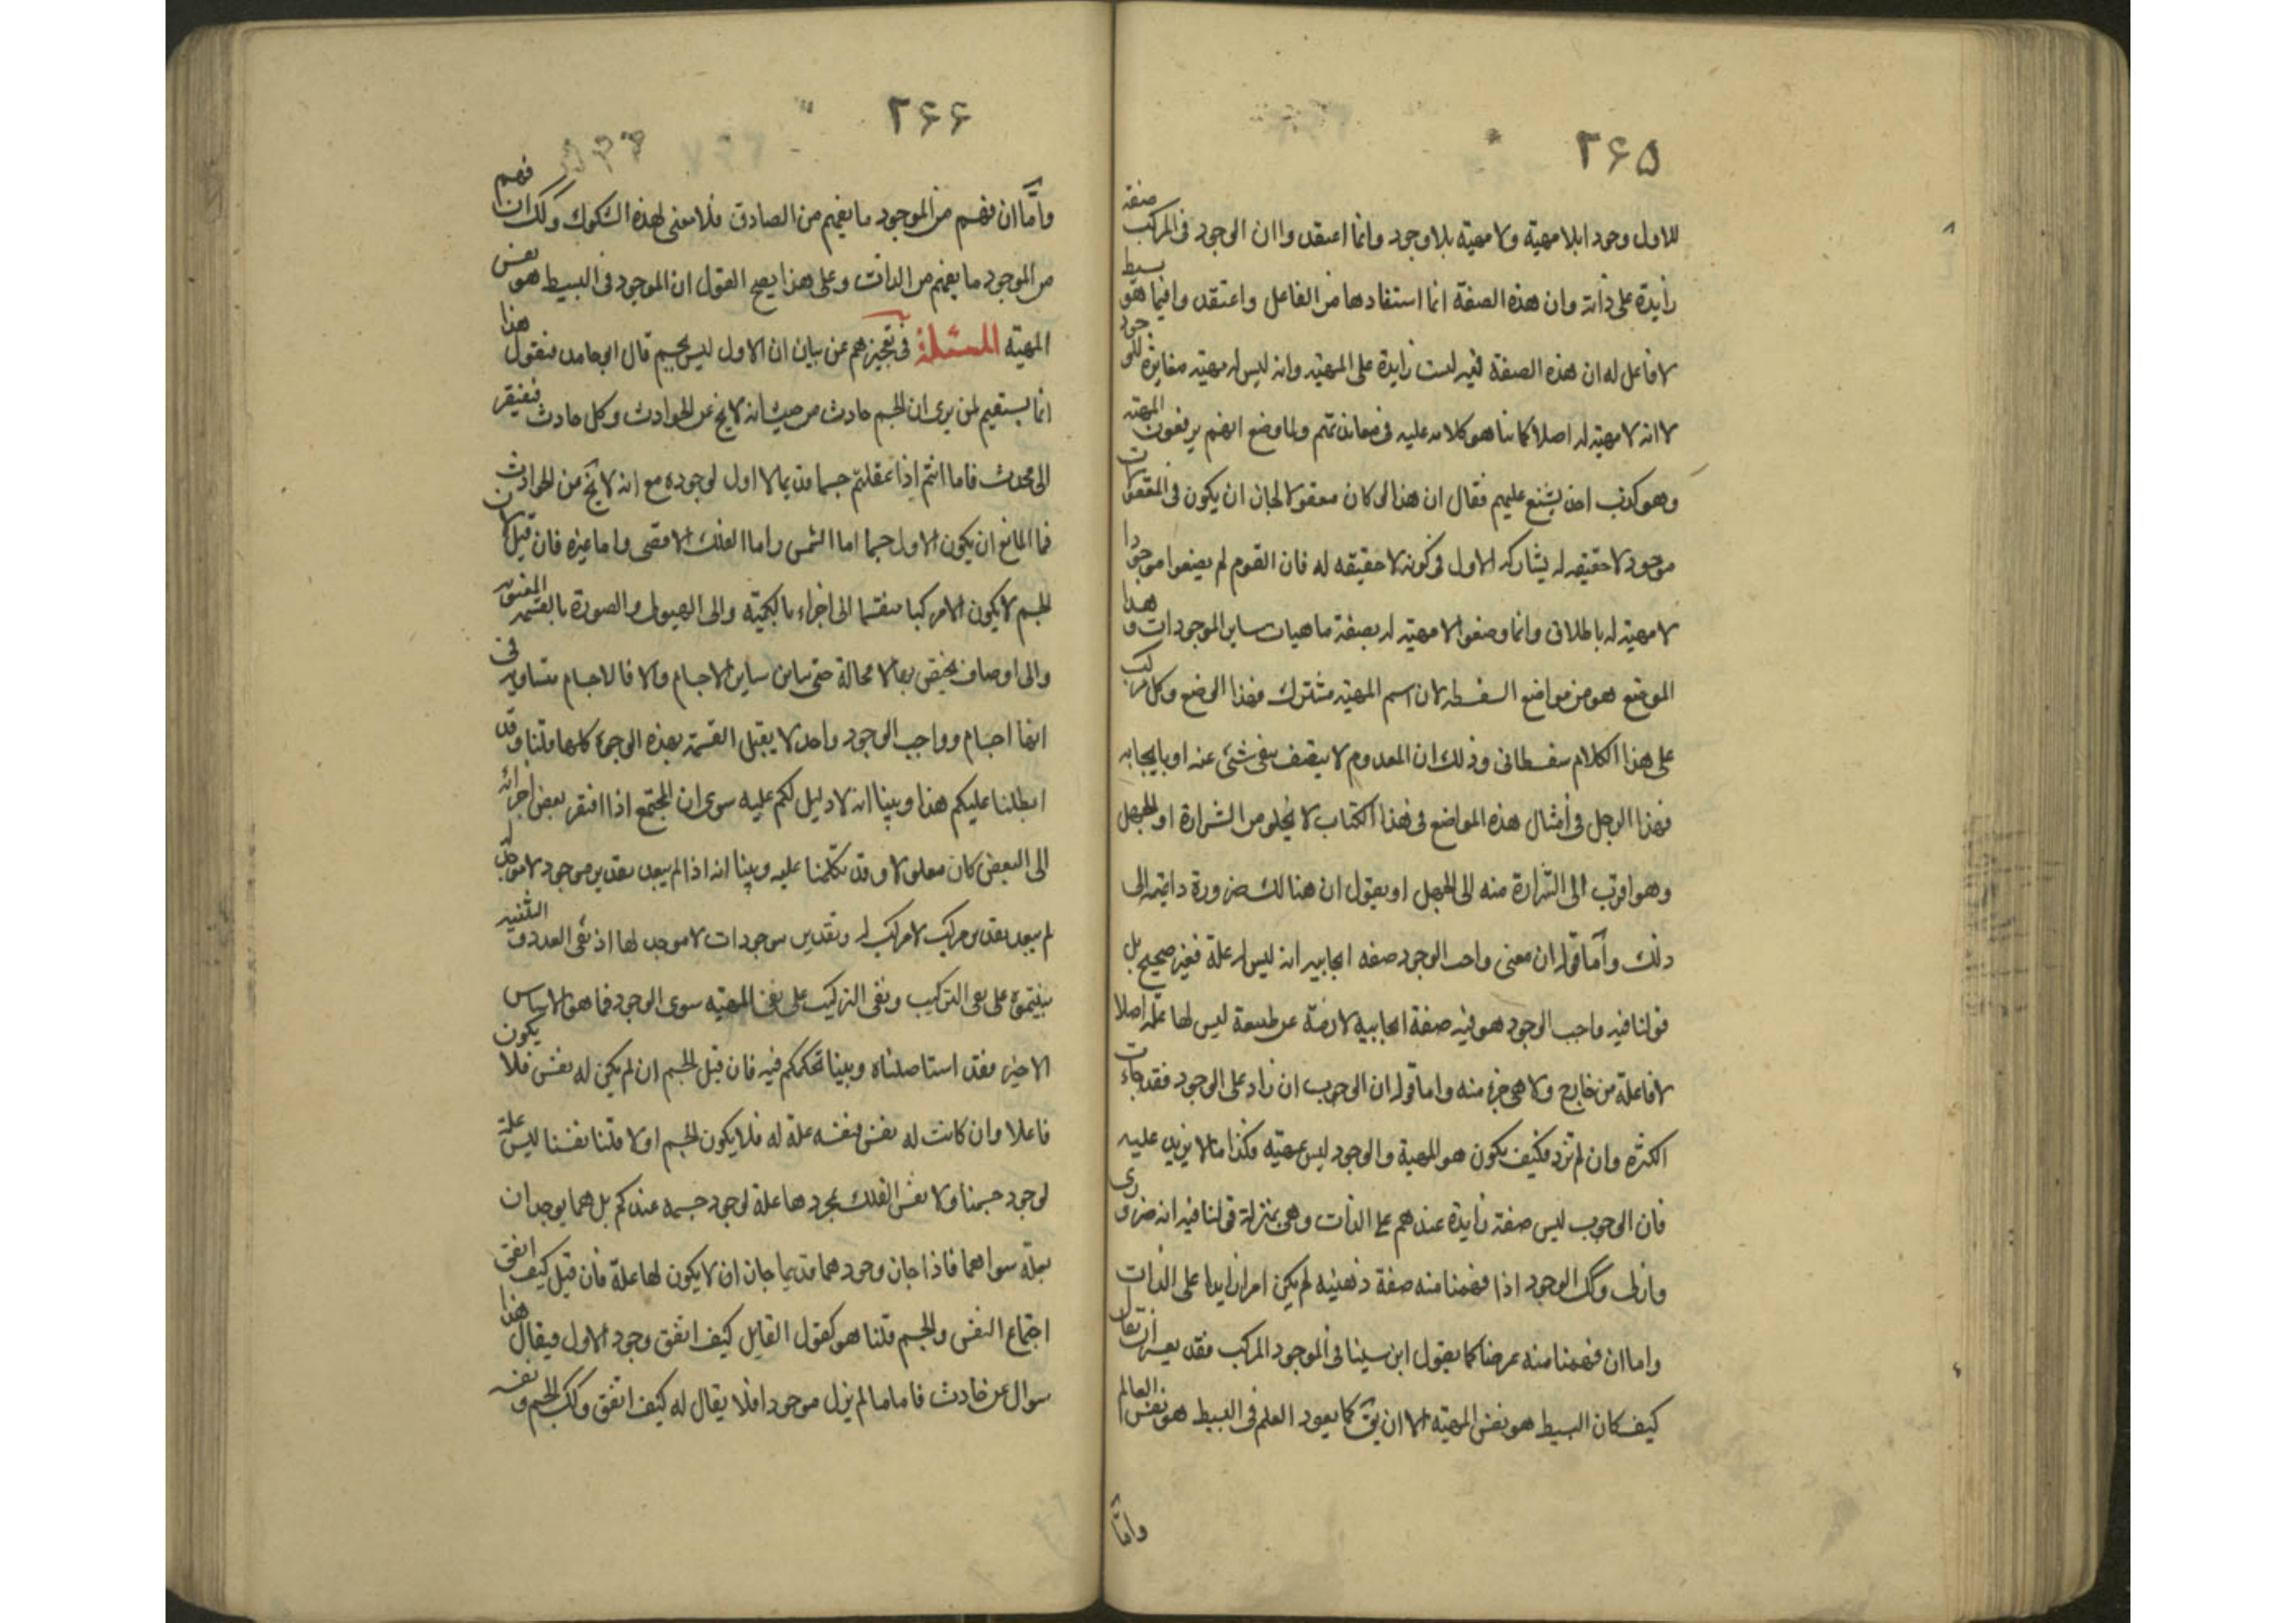 ٢۶۵
للاول وجودا بلا مهية ولا مهية بلا وجود وانما اعتقدوا ان الوجود فى المركب صفة
زايدة على ذاته وان هذه الصفة انما استفادها من الفاعل واعتقدوا فيما هو بسيط
لا فاعل له ان هذه الصفة فيه ليست زايدة على المهيه وانه ليس له مهيته مغايرة للوجود
لا انه لا مهية له اصلا كما بنا هو كلامه عليه فى معاندتهم ولما وضع انهم يرفعون المهيه
وهو كذب اخذ يشنع عليهم فقال ان هذا لو كان معقولا لجاز ان يكون فى المعقولات
موجود لا حقيقه له يشارك الاول فى كونه لا حقيقه له فان القوم لم يضعوا موجودا
لا مهية له باطلاق وانما وضعوا لا مهية له بصفة ماهيات ساير الموجودات وهذا
الموضع هو من مواضع السفسطه لان اسم المهية مشترك فهذا الوضع وكل مركب
على هذا الكلام سفسطانى وذلك ان المعدوم لا يتصف بنفى شئ عنه او بايجابه
فهذا الرجل فى امثال هذه المواضع فى هذا الكتاب لا يخلو من الشرارة او الجهل
وهو اقرب الى الشرارة منه الى الجهل او يقول ان هنالك ضرورة داعية الى
ذلك وأما قوله ان معنى واجب الوجود صفه ايجابيه انه ليس له علة فغير صحيح بل
قولنا فيه واجب الوجود هو فيه صفة ايجابيه لازمة عن طبيعة ليس لها علة اصلا
لا فاعلة من خارج ولا هى جزء منه واما قوله ان الوجوب ان زاد على الوجود فقد جاءت
الكثره وان لم تزد فكيف يكون هو المهية والوجود ليس بمهية فكذا ما لا يزيد عليه
فان الوجوب ليس صفة زايدة عندهم على الذات وهى بمنزلة قولنا فيه انه ضرورى
وازلى وكك الوجود اذا فهمنا منه صفة ذهنيه لم يكن امرا زايدا على الذات
واما ان فهمنا منه عرضا كما يقول ابن سينا فى الموجود المركب فقد يعسر ان يقال
كيف كان البسيط هو نفس المهية الا ان يق كما يعود العلم فى البسيط هو نفس العالم
وامّا
٢۶۶
وأمّا ان فهم من الموجود ما يفهم من الصادق فلا معنى لهذه الشكوك وكك ان فهم
من الموجود ما يفهم من الذات وعلى هذا يصح القول ان الموجود فى البسيط هو نفس
المهيّه المسئلة فى تعجيزهم عن بيان ان الاول ليس بجسم قال ابو حامد فنقول هذا
انما يستقيم لمن يرى ان الجسم حادث من حيث انه لا يخ عن الحوادث وكل حادث فيفتقر
الى محدث فاما انتم اذا عقلتم جسما قديما لا اول لوجوده مع انه لا يخ من الحوادث
فما المانع ان يكون الاول جسما اما الشمس واما الفلك الاقصى واما غيره فان قيل لان
الجسم لا يكون الا مركبا منقسما الى اجزاء بالكمية والى الهيولى والصورة بالقسمه المعنويه
والى اوصاف يختص بها لا محالة حتى يباين ساير الاجسام والا فالاجسام متساويه فى
انها اجسام وواجب الوجود واحد لا يقبل القسمة بهذه الوجوه كلها قلنا وقد
ابطلنا عليكم هذا وبينا انه لا دليل لكم عليه سوى ان المجتمع اذا افتقر بعض اجزائه
الى البعض كان معلولا وقد تكلمنا عليه وبينا انه اذا لم يبعد تقدير موجود لا موجد له
لم يبعد تقدير مركب لا مركب له وتقدير موجودات لا موجد لها اذ نفى العدد والتثنيه
بنيتموه على نفى التركيب ونفى التركيب على نفى المهيه سوى الوجود فما هو الاساس
الاخير فقد استاصلناه وبينا تحكمكم فيه فان قيل الجسم ان لم يكن له نفس فلا يكون
فاعلا وان كانت له نفس فنفسه علة له فلا يكون الجسم اولا قلنا نفسنا ليس علة
لوجود جسمنا ولا نفس الفلك بمجردها علة لوجود جسمه عندكم بل هما يوجدان
بعلة سواهما فاذا جاز وجودهما قديما جاز ان لا يكون لها علة فان قيل كيف اتفق
اجتماع النفس والجسم قلنا هو كقول القايل كيف اتفق وجود الاول فيقال هذا
سوال عن حادث فاما ما لم يزل موجودا فلا يقال له كيف اتفق وكك الجسم ونفسه